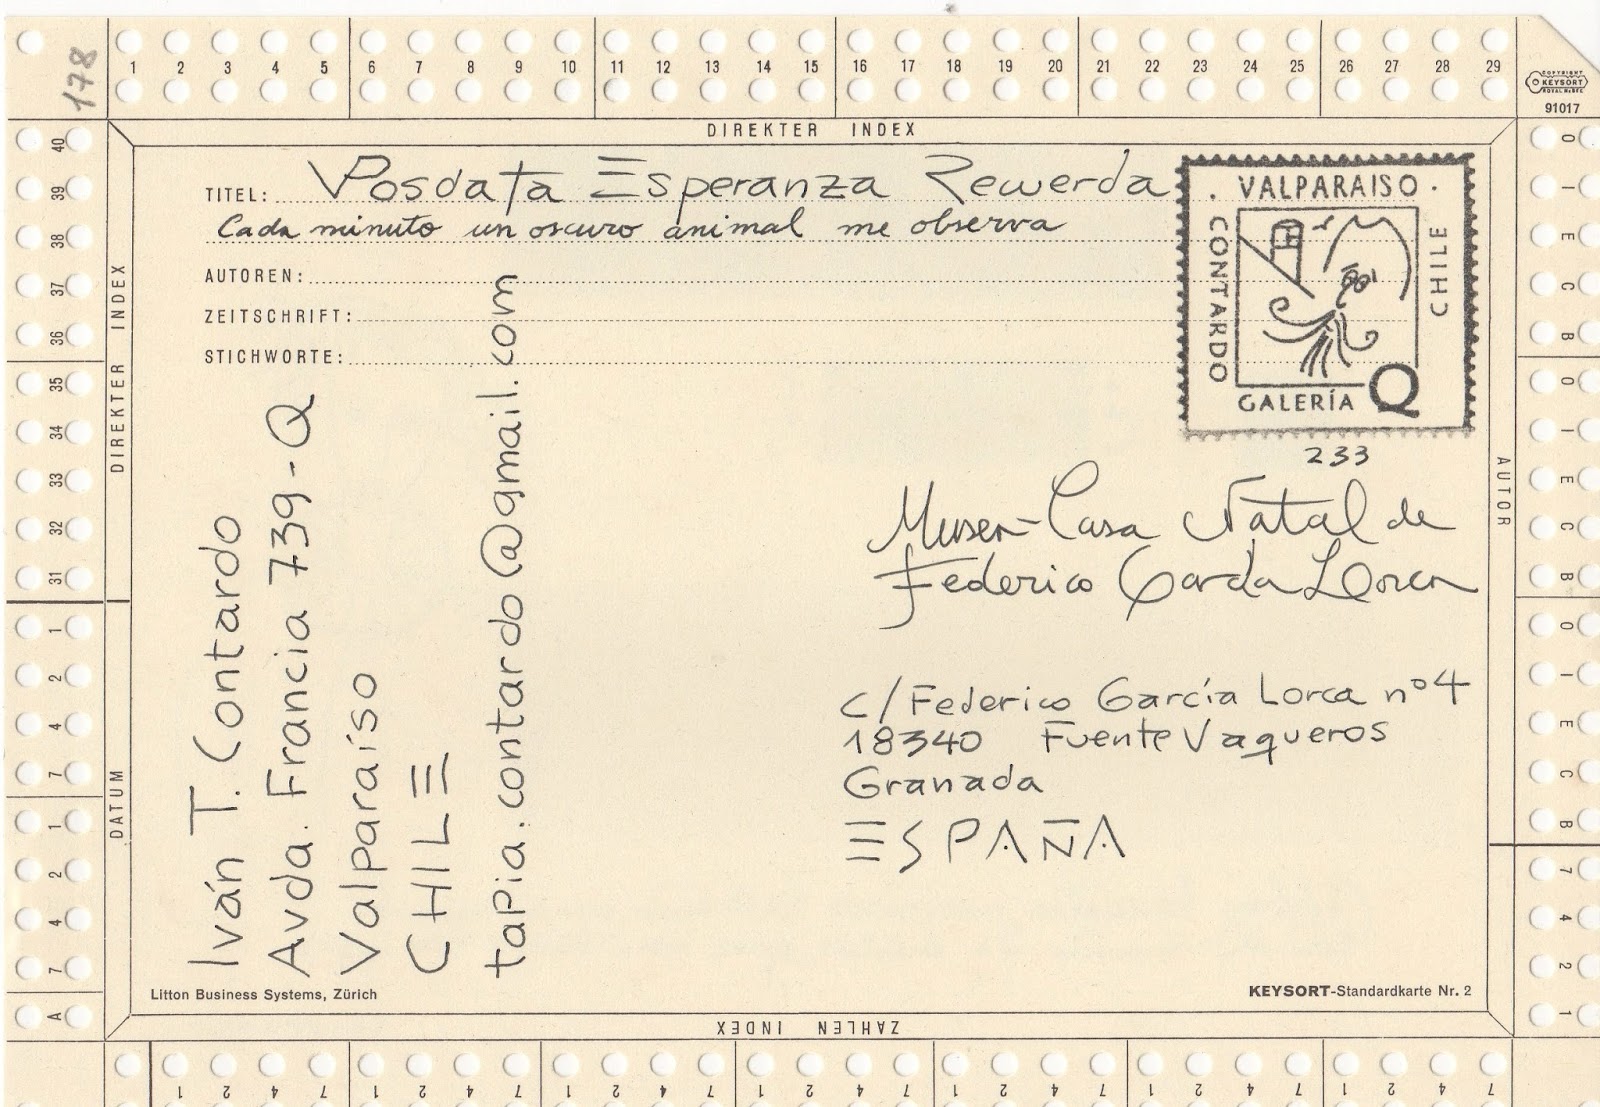 178
1 2 3 4 5 6 7 8 9 10 11 12 13 14 15 16 17 18 19 20 21 22 23 24 25 26 27 28 29
COPYRIGHT
KEYSORT
ROYAL McBEE
91017
DIREKTER INDEX
TITEL: Posdata Esperanza Recuerda
Cada minuto un oscuro animal me observa
AUTOREN:
ZEITSCHRIFT:
STICHWORTE:
· VALPARAISO ·
CONTARDO
CHILE
GALERÍA Q
233
Museo-Casa Natal de
Federico García Lorca
c/Federico García Lorca nº4
18340 Fuente Vaqueros
Granada
ESPAÑA
Iván T. Contardo
Avda. Francia 739-Q
Valparaíso
CHILE
tapia.contardo@gmail.com
40 39 38 37 36 35 34 33 32 31 1 2 4 7 1 2 4 7 A
DIREKTER INDEX
DIREKTER INDEX
DATUM
AUTOR
O I E C B O I E C B O I E C B 7 4 2 1
Litton Business Systems, Zürich
KEYSORT-Standardkarte Nr. 2
ZAHLEN INDEX
1 2 4 7 1 2 4 7 1 2 4 7 1 2 4 7 1 2 4 7 1 2 4 7 1 2 4 7